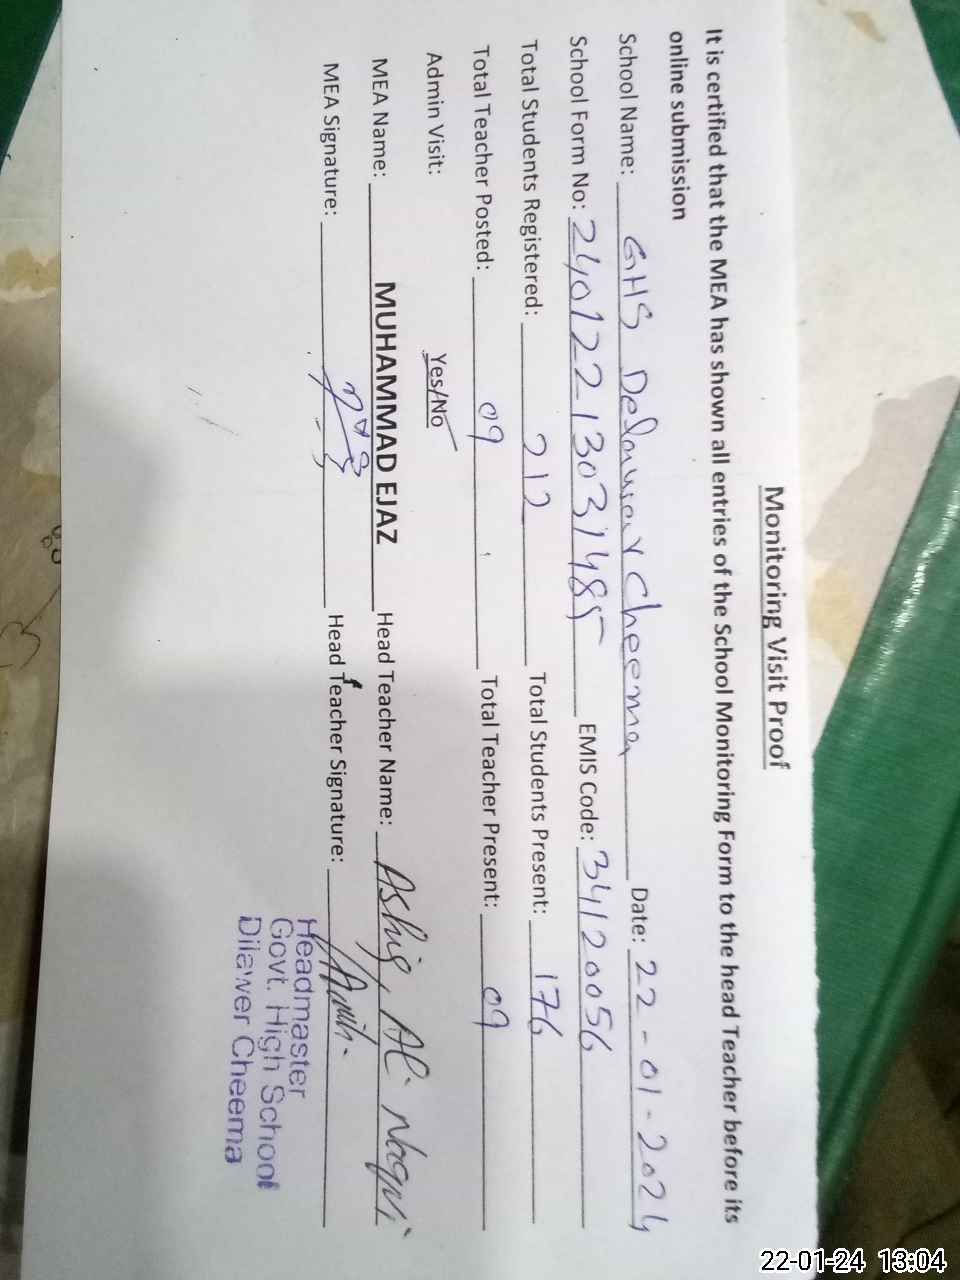 Monitoring Visit Proof
It is certified that the MEA has shown all entries of the School Monitoring Form to the head Teacher before its
online submission
School Name: GHS Delawar Cheema Date: 22-01-2024
School Form No: 24012213031485 EMIS Code: 34120056
Total Students Registered: 212 Total Students Present: 176
Total Teacher Posted: 09 Total Teacher Present: 09
Admin Visit: Yes/No
MEA Name: MUHAMMAD EJAZ Head Teacher Name: Ashiq Ali Naqvi
MEA Signature: Head Teacher Signature:
Headmaster
Govt. High School
Dilawer Cheema
22-01-24 13:04